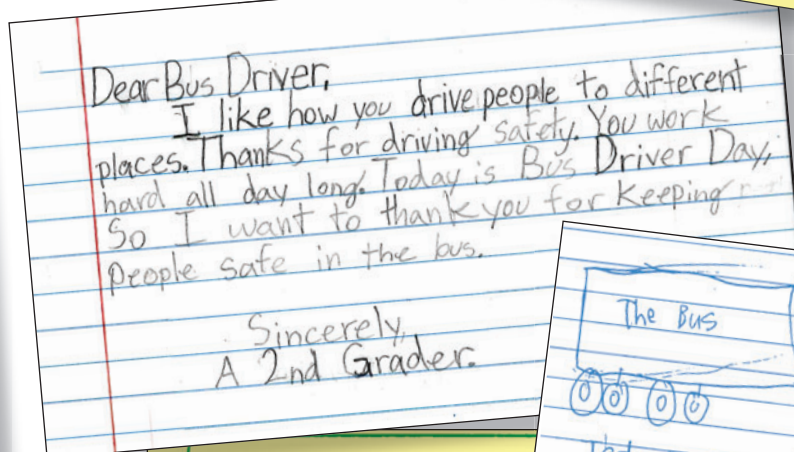 Dear Bus Driver,
I like how you drive people to different
places. Thanks for driving safety. You work
hard all day long. Today is Bus Driver Day,
So I want to thank you for keeping
people safe in the bus.
Sincerely,
A 2nd Grader.
The Bus